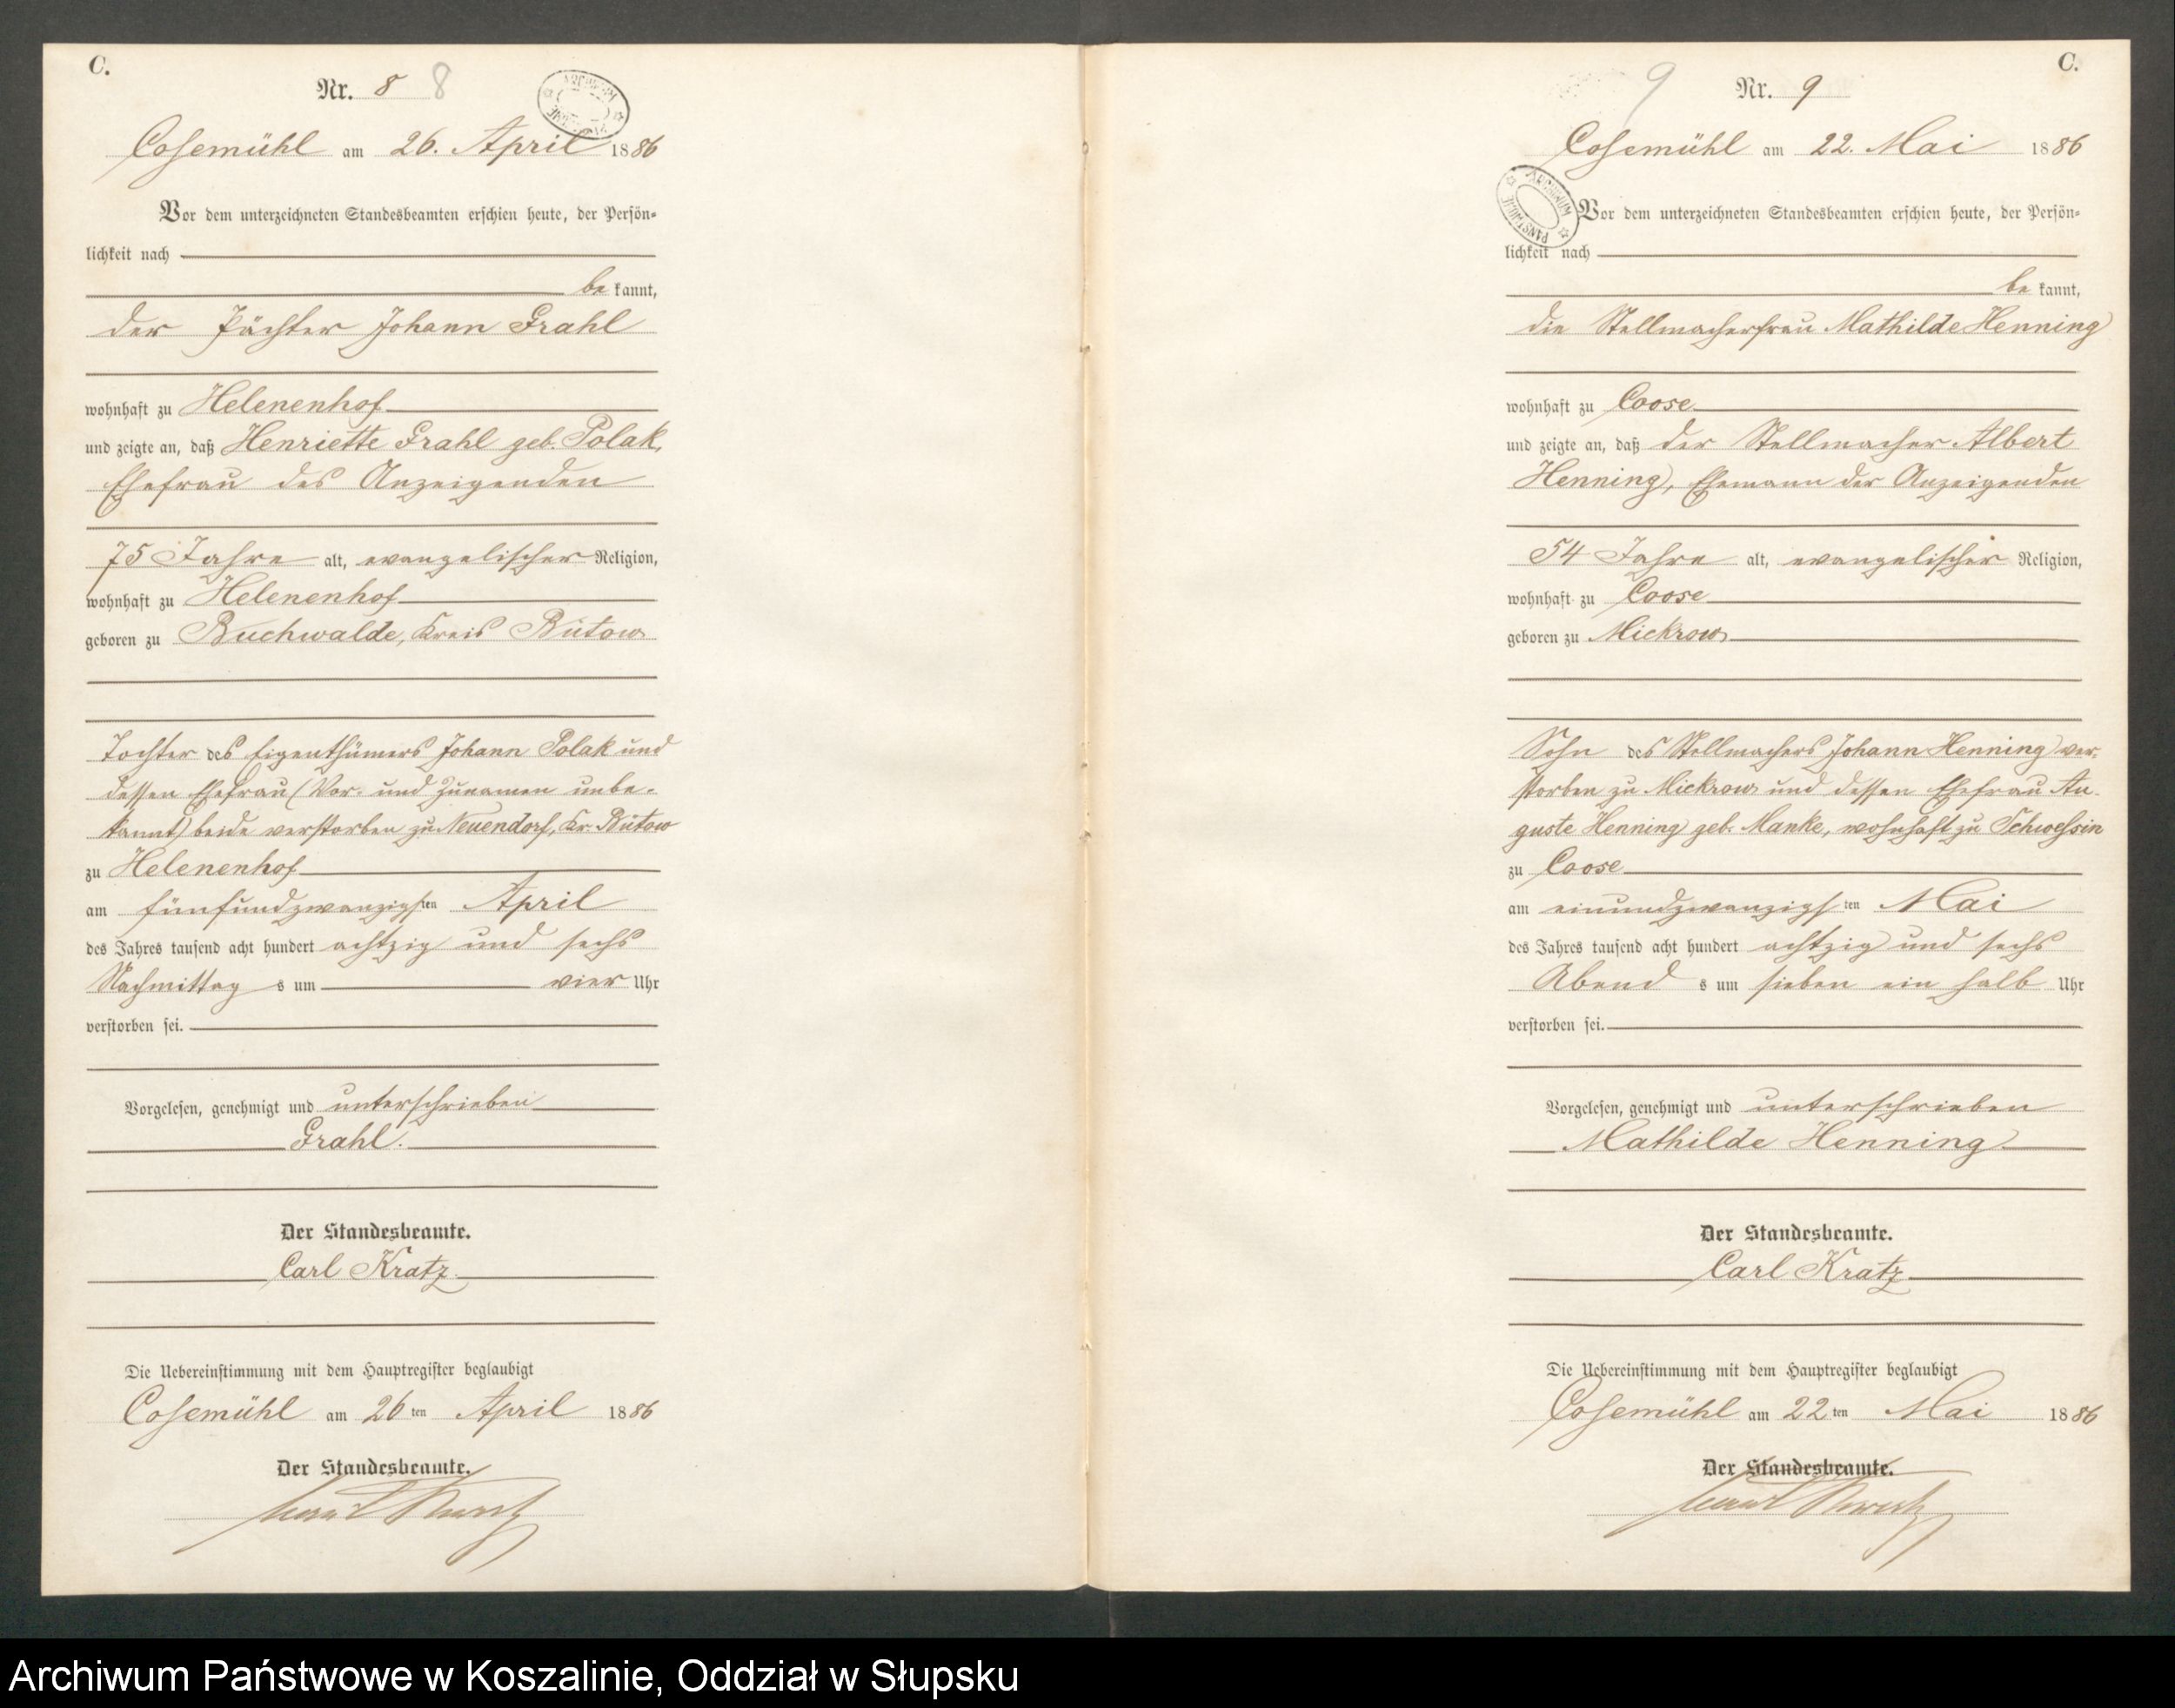 C.
Nr. 8 8
ARCHIWUM
Cosemühl am 26. April 1886
Vor dem unterzeichneten Standesbeamten erschien heute, der Persön=
lichkeit nach
be kannt,
der Pächter Johann Grahl
wohnhaft zu Helenenhof
und zeigte an, daß Henriette Grahl geb. Polak,
Ehefrau des Anzeigenden
75 Jahre alt, evangelischer Religion,
wohnhaft zu Helenenhof
geboren zu Buchwalde, Kreis Bütow
Tochter des Eigenthümers Johann Polak und
dessen Ehefrau (Vor- und Zunamen unbe-
kannt) beide verstorben zu Neuendorf, Kr. Bütow
zu Helenenhof
am fünfundzwanzigsten April
des Jahres tausend acht hundert achtzig und sechs
Nachmittag s um vier Uhr
verstorben sei.
Vorgelesen, genehmigt und unterschrieben
Grahl.
Der Standesbeamte.
Carl Kratz.
Die Uebereinstimmung mit dem Hauptregister beglaubigt
Cosemühl am 26 ten April 1886
Der Standesbeamte.
Carl Kratz
C.
9 Nr. 9
Cosemühl am 22. Mai 1886
ARCHIWUM PAŃSTWOWE
Vor dem unterzeichneten Standesbeamten erschien heute, der Persön=
lichkeit nach
be kannt,
die Stellmacherfrau Mathilde Henning
wohnhaft zu Coose
und zeigte an, daß der Stellmacher Albert
Henning, Ehemann der Anzeigenden
54 Jahre alt, evangelischer Religion,
wohnhaft zu Coose
geboren zu Mickrow
Sohn des Stellmachers Johann Henning ver-
storben zu Mickrow und dessen Ehefrau Au-
guste Henning geb. Manke, wohnhaft zu Schwessin
zu Coose
am einundzwanzigsten Mai
des Jahres tausend acht hundert achtzig und sechs
Abend s um sieben ein halb Uhr
verstorben sei.
Vorgelesen, genehmigt und unterschrieben
Mathilde Henning
Der Standesbeamte.
Carl Kratz.
Die Uebereinstimmung mit dem Hauptregister beglaubigt
Cosemühl am 22 ten Mai 1886
Der Standesbeamte.
Carl Kratz
Archiwum Państwowe w Koszalinie, Oddział w Słupsku